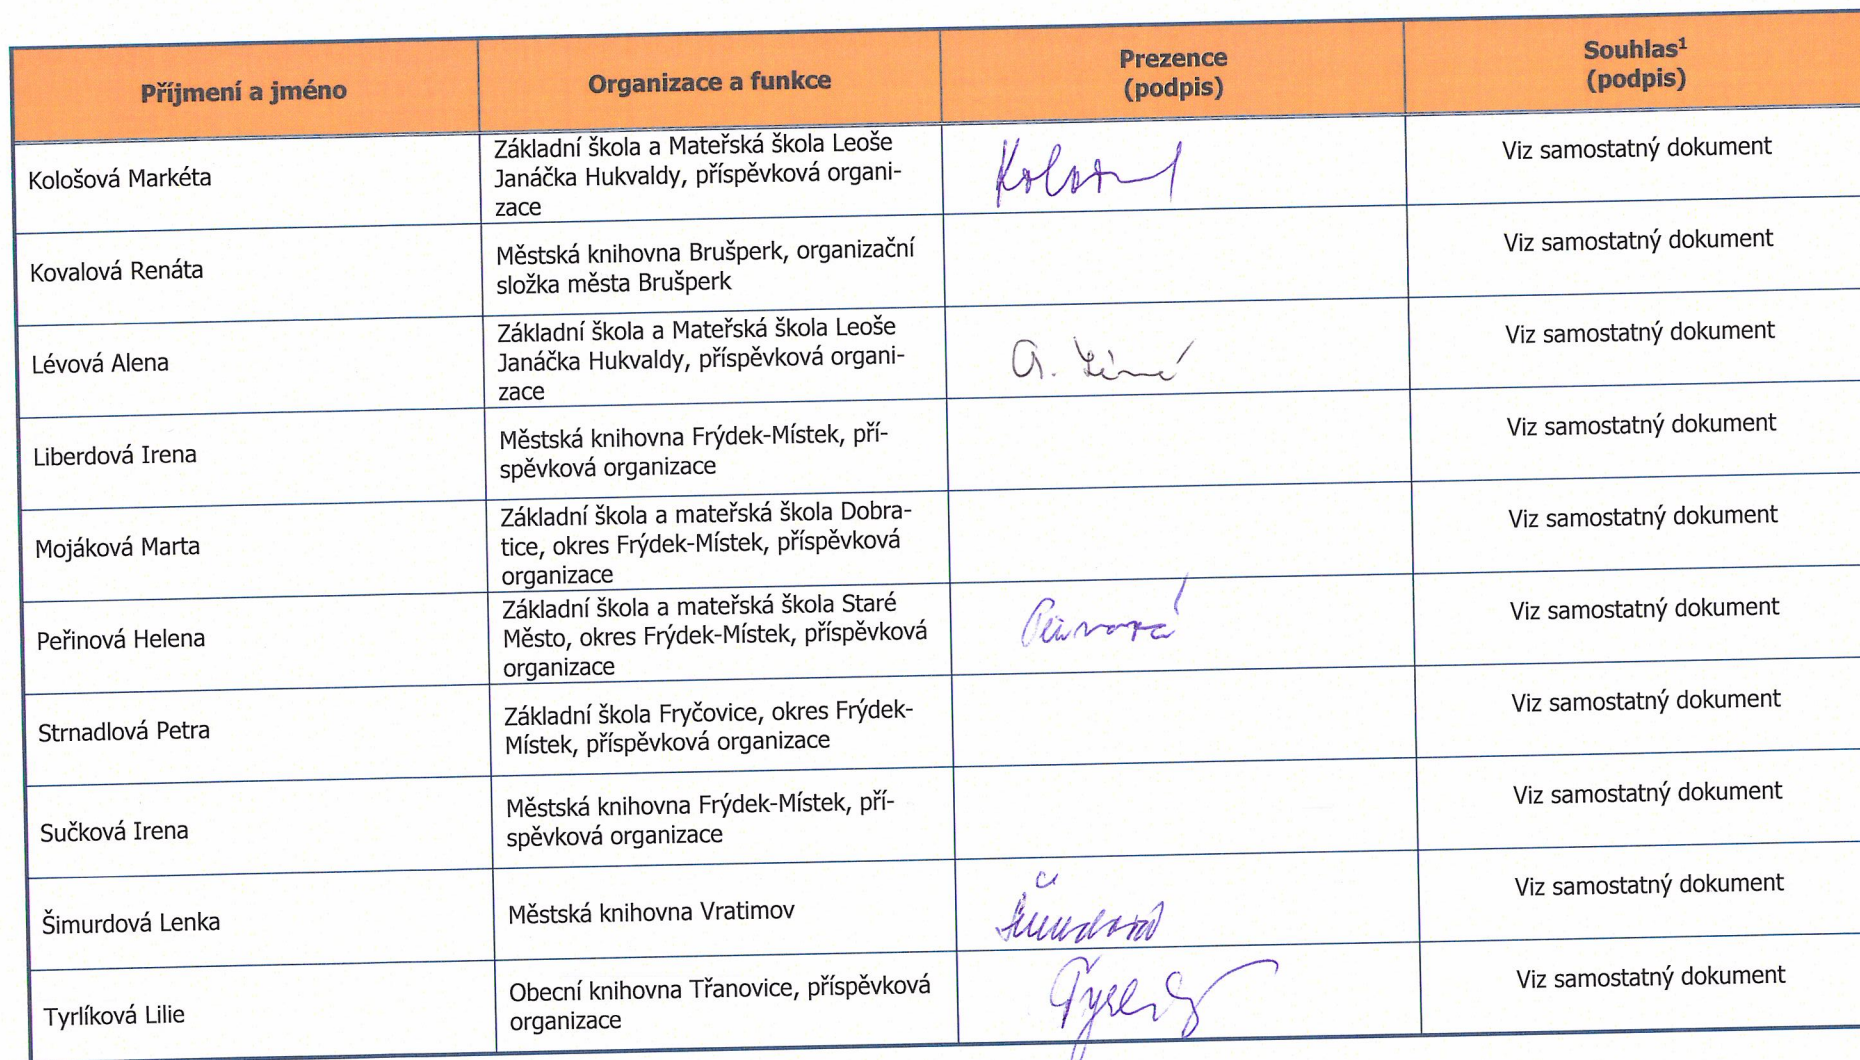 Příjmení a jméno
Organizace a funkce
Prezence
(podpis)
Souhlas¹
(podpis)
Kološová Markéta
Základní škola a Mateřská škola Leoše
Janáčka Hukvaldy, příspěvková organi-
zace
Viz samostatný dokument
Kovalová Renáta
Městská knihovna Brušperk, organizační
složka města Brušperk
Viz samostatný dokument
Lévová Alena
Základní škola a Mateřská škola Leoše
Janáčka Hukvaldy, příspěvková organi-
zace
A.
Viz samostatný dokument
Liberdová Irena
Městská knihovna Frýdek-Místek, pří-
spěvková organizace
Viz samostatný dokument
Mojáková Marta
Základní škola a mateřská škola Dobra-
tice, okres Frýdek-Místek, příspěvková
organizace
Viz samostatný dokument
Peřinová Helena
Základní škola a mateřská škola Staré
Město, okres Frýdek-Místek, příspěvková
organizace
Viz samostatný dokument
Strnadlová Petra
Základní škola Fryčovice, okres Frýdek-
Místek, příspěvková organizace
Viz samostatný dokument
Sučková Irena
Městská knihovna Frýdek-Místek, pří-
spěvková organizace
Viz samostatný dokument
Šimurdová Lenka
Městská knihovna Vratimov
Viz samostatný dokument
Tyrlíková Lilie
Obecní knihovna Třanovice, příspěvková
organizace
Viz samostatný dokument